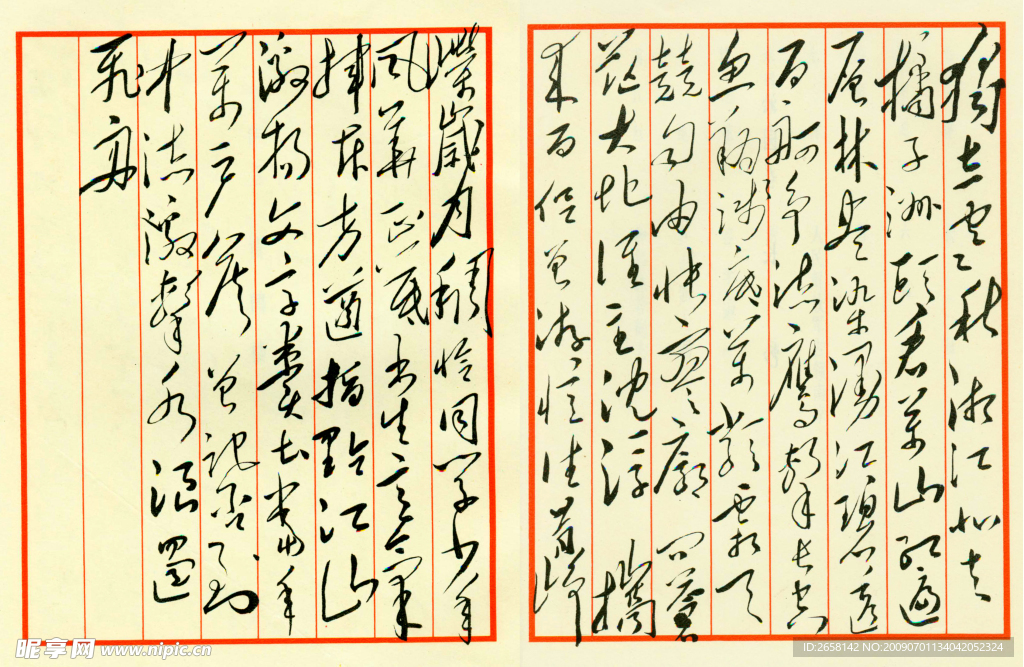 獨立寒秋湘江北去
橘子洲頭看萬山紅遍
層林盡染漫江碧透
百舸爭流鷹擊長空
魚翔淺底萬類霜天
競自由悵寥廓問蒼
茫大地誰主沉浮攜
來百侶曾游憶往昔崢
嶸歲月稠恰同學少年
風華正茂書生意氣
揮斥方遒指點江山
激揚文字糞土當年
萬戶侯曾記否到
中流激擊水浪遏
飛舟
昵享网 www.nipic.cn
ID:2658142 NO:20090701134042052324